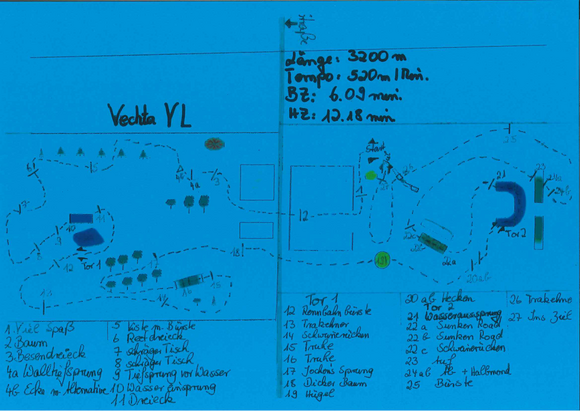 Straße
Länge: 3200 m
Tempo: 520 m/Min.
BZ: 6.09 min.
HZ: 12.18 min
Vechta VL
Start
Tor 1
Tor 2
1 Viel Spaß
2 Baum
3 Besendreieck
4a Walltiefsprung
4b Ecke m. Alternative
5 Kiste m. Bürste
6
7 schräger Tisch
8 schräger Tisch
9 Tiefsprung vor Wasser
10 Wassereinsprung
11 Dreieck
Tor 1
12 Rennbahn Bürste
13 Trakehner
14 Schweinerücken
15 Truhe
16 Truhe
17 Sprung
18 Dicker Baum
19 Hügel
20 ab Hecken
Tor 2
21 Wasseraussprung
22 a Sunken Road
22 b Sunken Road
22 c Schweinerücken
23 Auf
24 ab Ab + Halbmond
25 Bürste
26 Trakehner
27 Ins Ziel